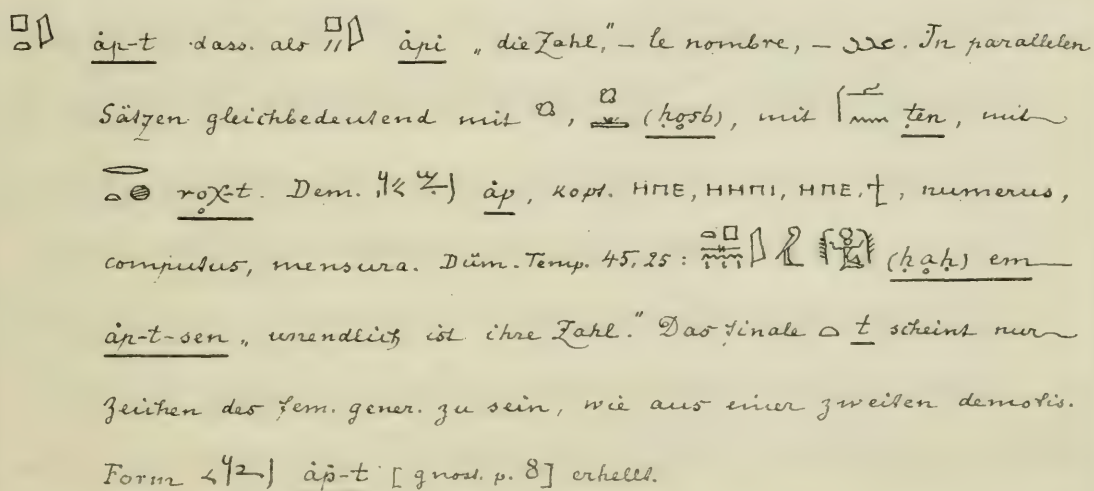 ȧp-t dass. als ȧpi „die Zahl," – le nombre, – عدد. In parallelen
Sätzen gleichbedeutend mit (ḥosb), mit ten, mit
roχ-t. Dem. ȧp, kopt. ⲎⲠⲈ, ⲎⲎⲠⲒ, ⲎⲠⲈ, ϯ, numerus,
computus, mensura. Düm. Temp. 45,25: (ḥaḥ) em
ȧp-t-sen „unendlich ist ihre Zahl." Das finale t scheint nur
Zeichen des fem. gener. zu sein, wie aus einer zweiten demotis.
Form ȧp-t [gnost. p. 8] erhellt.